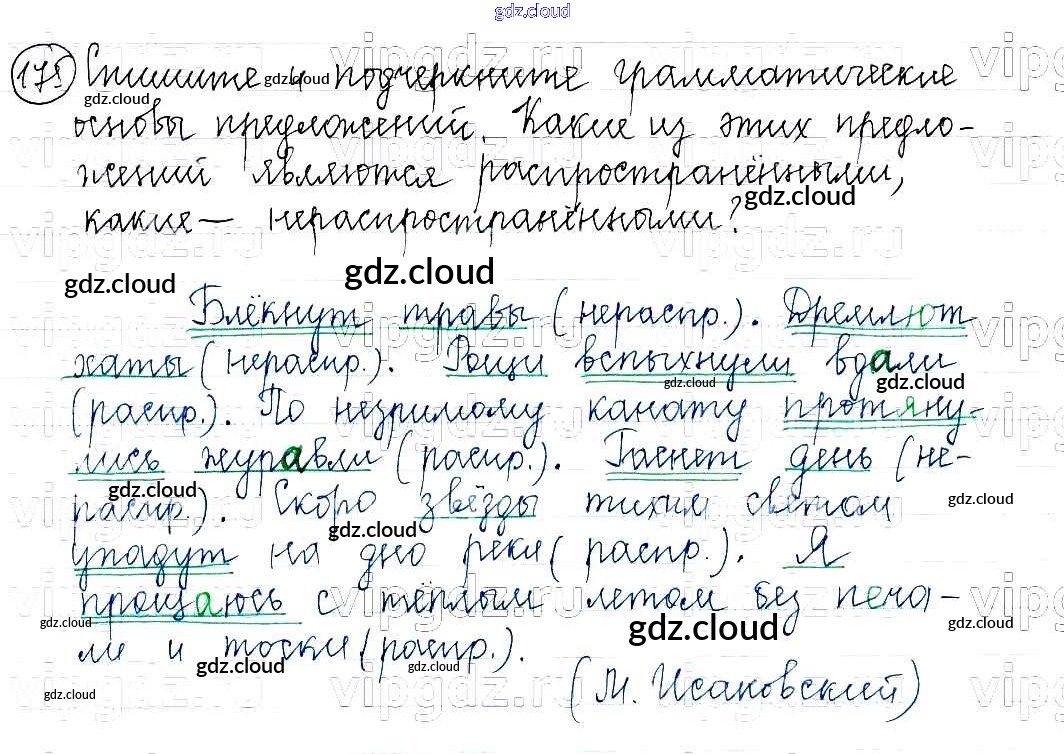 gdz.cloud
175 Спишите и подчеркните грамматические
основы предложений. Какие из этих предло-
жений являются распространёнными,
какие — нераспространёнными?
Блёкнут травы (нераспр.). Дремлют
хаты (нераспр.). Рощи вспыхнули вдали
(распр.). По незримому канату протяну-
лись журавли (распр.). Гаснет день (не-
распр.). Скоро звёзды тихим светом
упадут на дно реки (распр.). Я
прощаюсь с тёплым летом без печа-
ли и тоски (распр.).
(М. Исаковский)